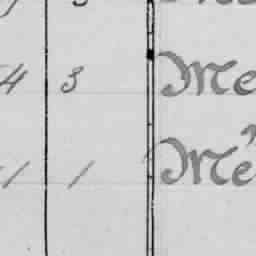 4 3 Me
1 1 Me